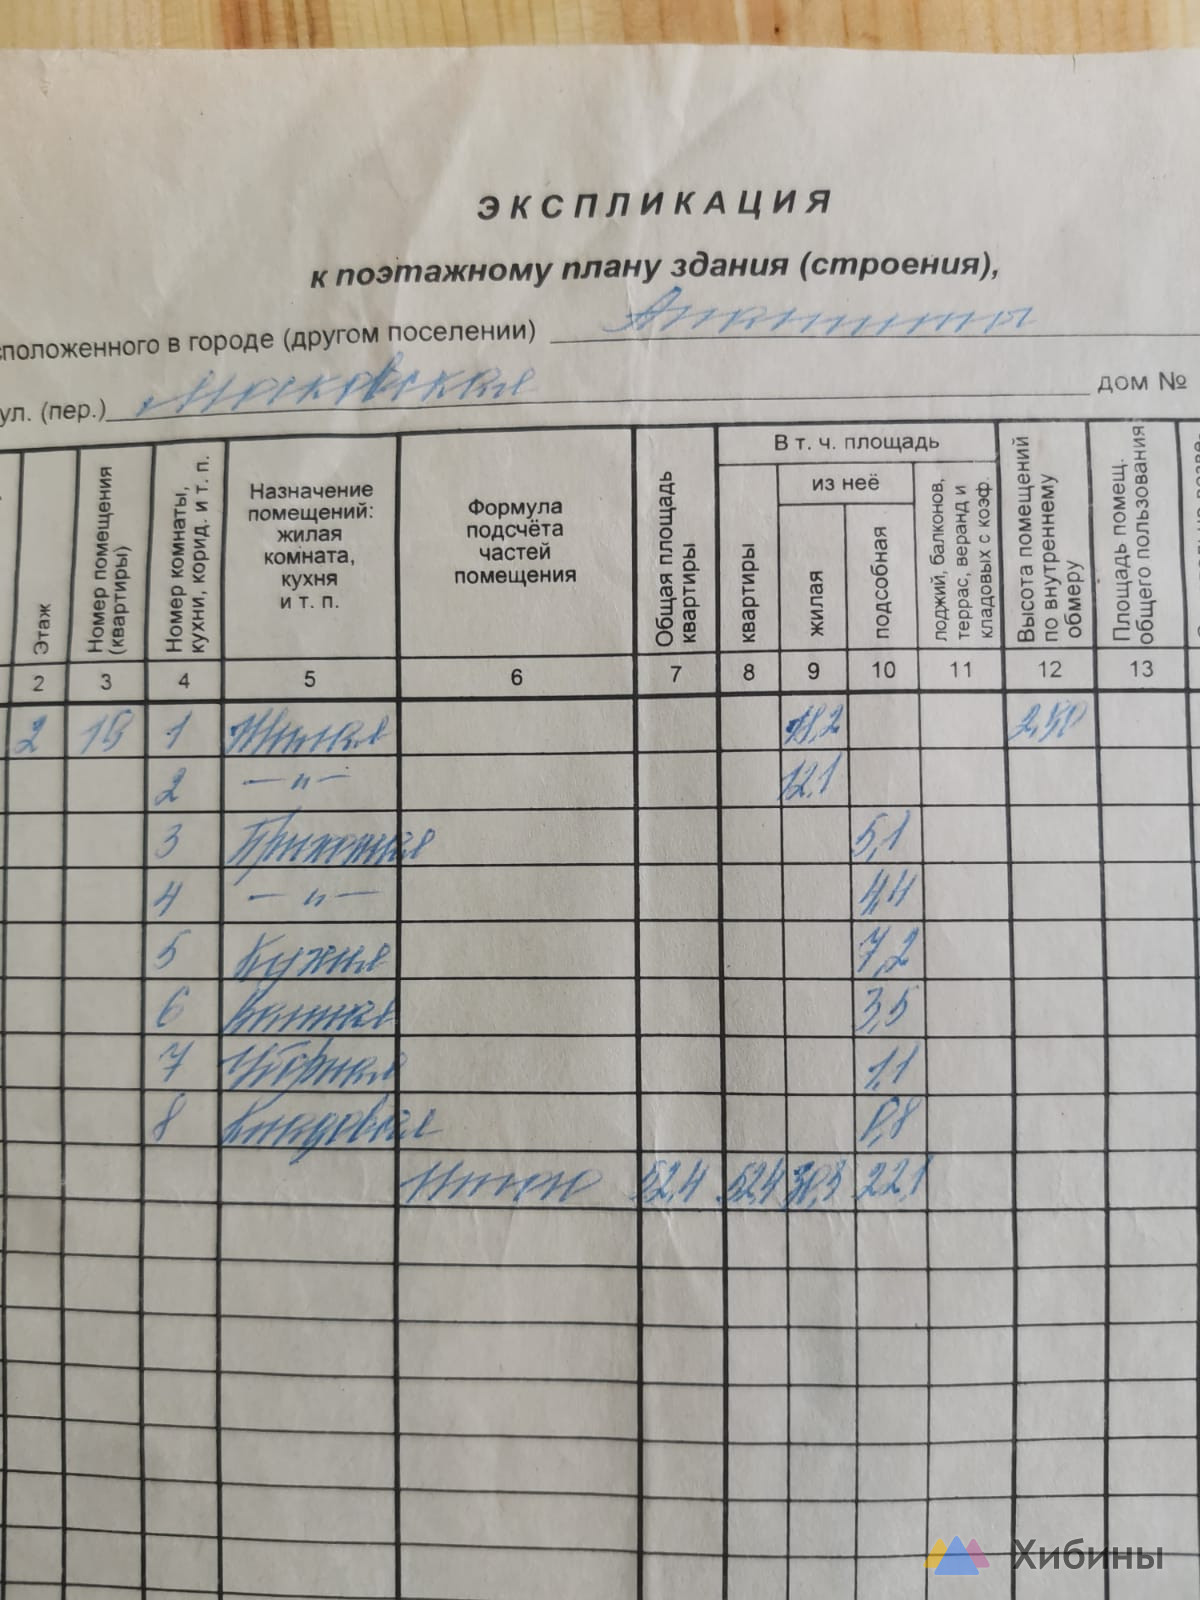 ЭКСПЛИКАЦИЯ
к поэтажному плану здания (строения),
сположенного в городе (другом поселении) Апатиты
ул. (пер.) Московская дом №
Этаж
Номер помещения (квартиры)
Номер комнаты, кухни, корид. и т. п.
Назначение помещений: жилая комната, кухня и т. п.
Формула подсчёта частей помещения
Общая площадь квартиры
В т. ч. площадь
из неё
квартиры
жилая
подсобная
лоджий, балконов, террас, веранд и кладовых с коэф.
Высота помещений по внутреннему обмеру
Площадь помещ. общего пользования
2 3 4 5 6 7 8 9 10 11 12 13
2 15 1 Жилая 18,2 2,50
2 —"— 12,1
3 Прихожая 5,1
4 —"— 4,4
5 Кухня 7,2
6 Ванная 3,5
7 Уборная 1,1
8 Кладовая 0,8
Итого 52,4 52,4 30,3 22,1
Хибины